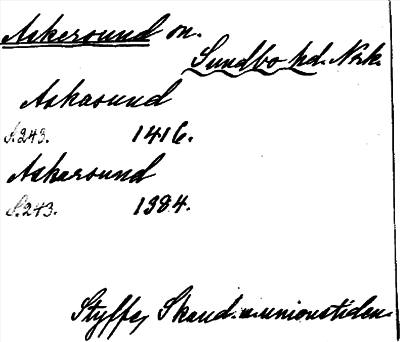 Askersund on.
Sundbo hd. Nrk.
Askasund
S.243. 1416.
Askarsund
S.243. 1384.
Styffe, Skand. u. unionstiden.